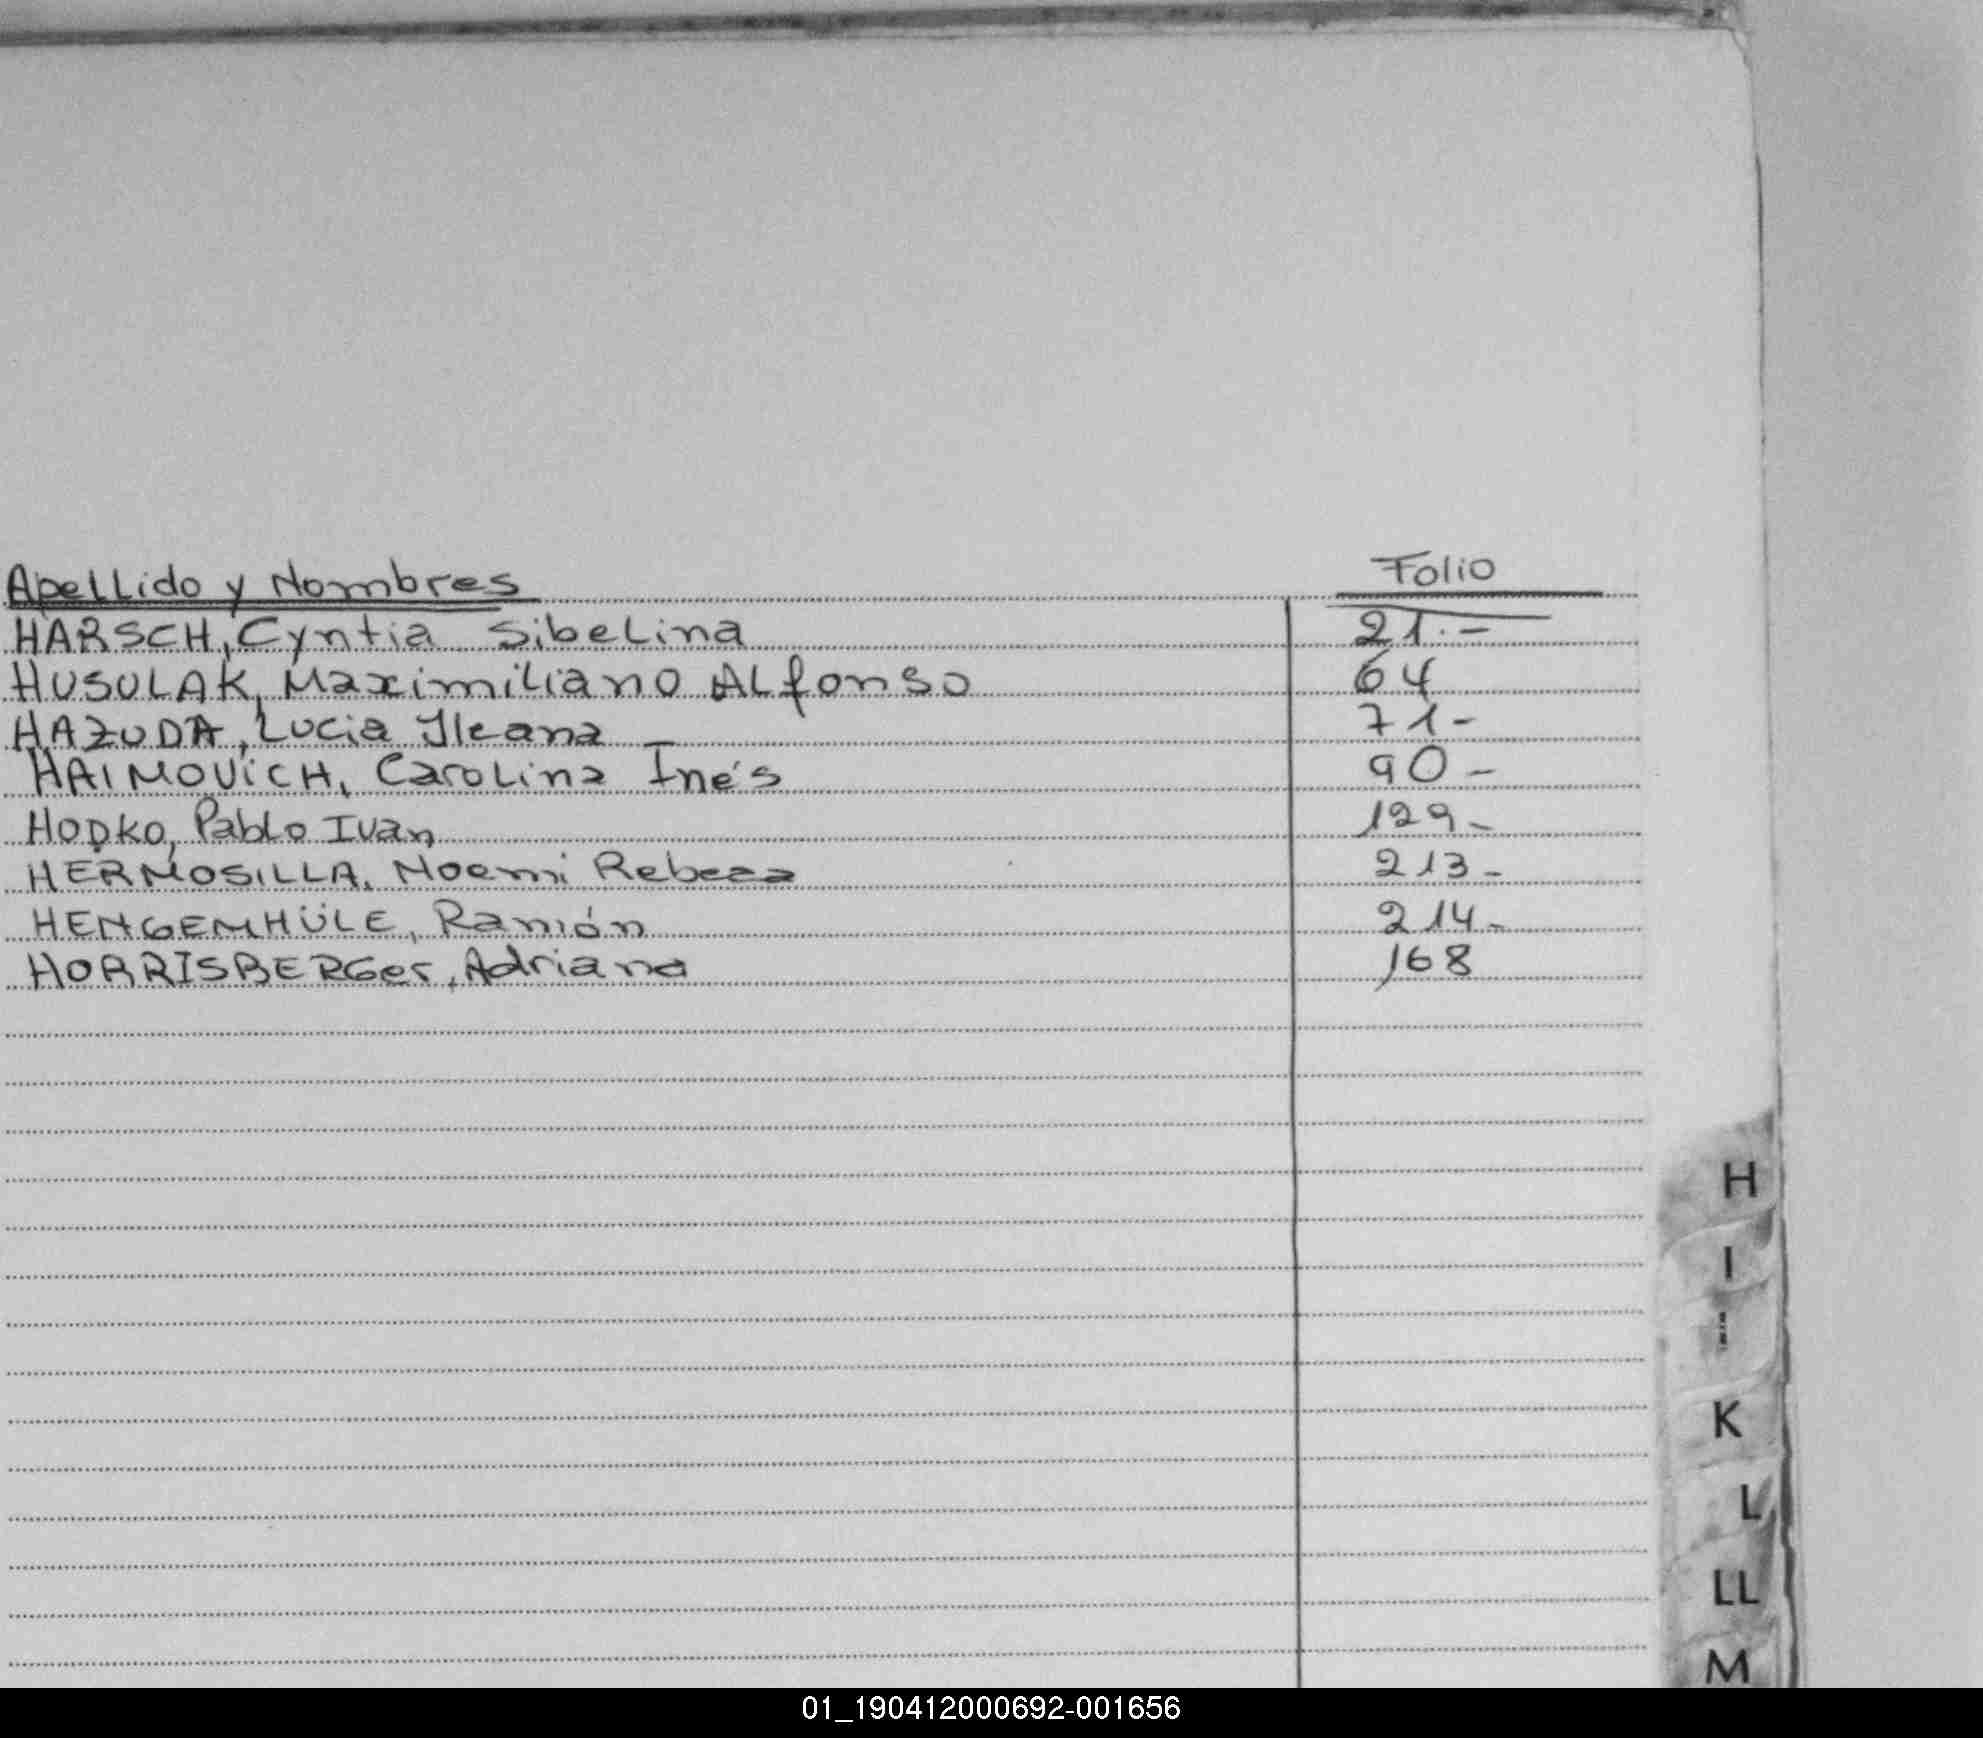 Apellido y Nombres Folio
HARSCH, Cyntia Sibelina 21.-
HUSULAK, Maximiliano Alfonso 64
HAZUDA, Lucia Ileana 71-
HAIMOVICH, Carolina Inés 90-
HODKO, Pablo Ivan 129-
HERMOSILLA, Noemi Rebeca 213-
HENGEMHÜLE, Ramón 214-
HORRISBERGer, Adriana 168
H
I
K
L
LL
M
01_190412000692-001656